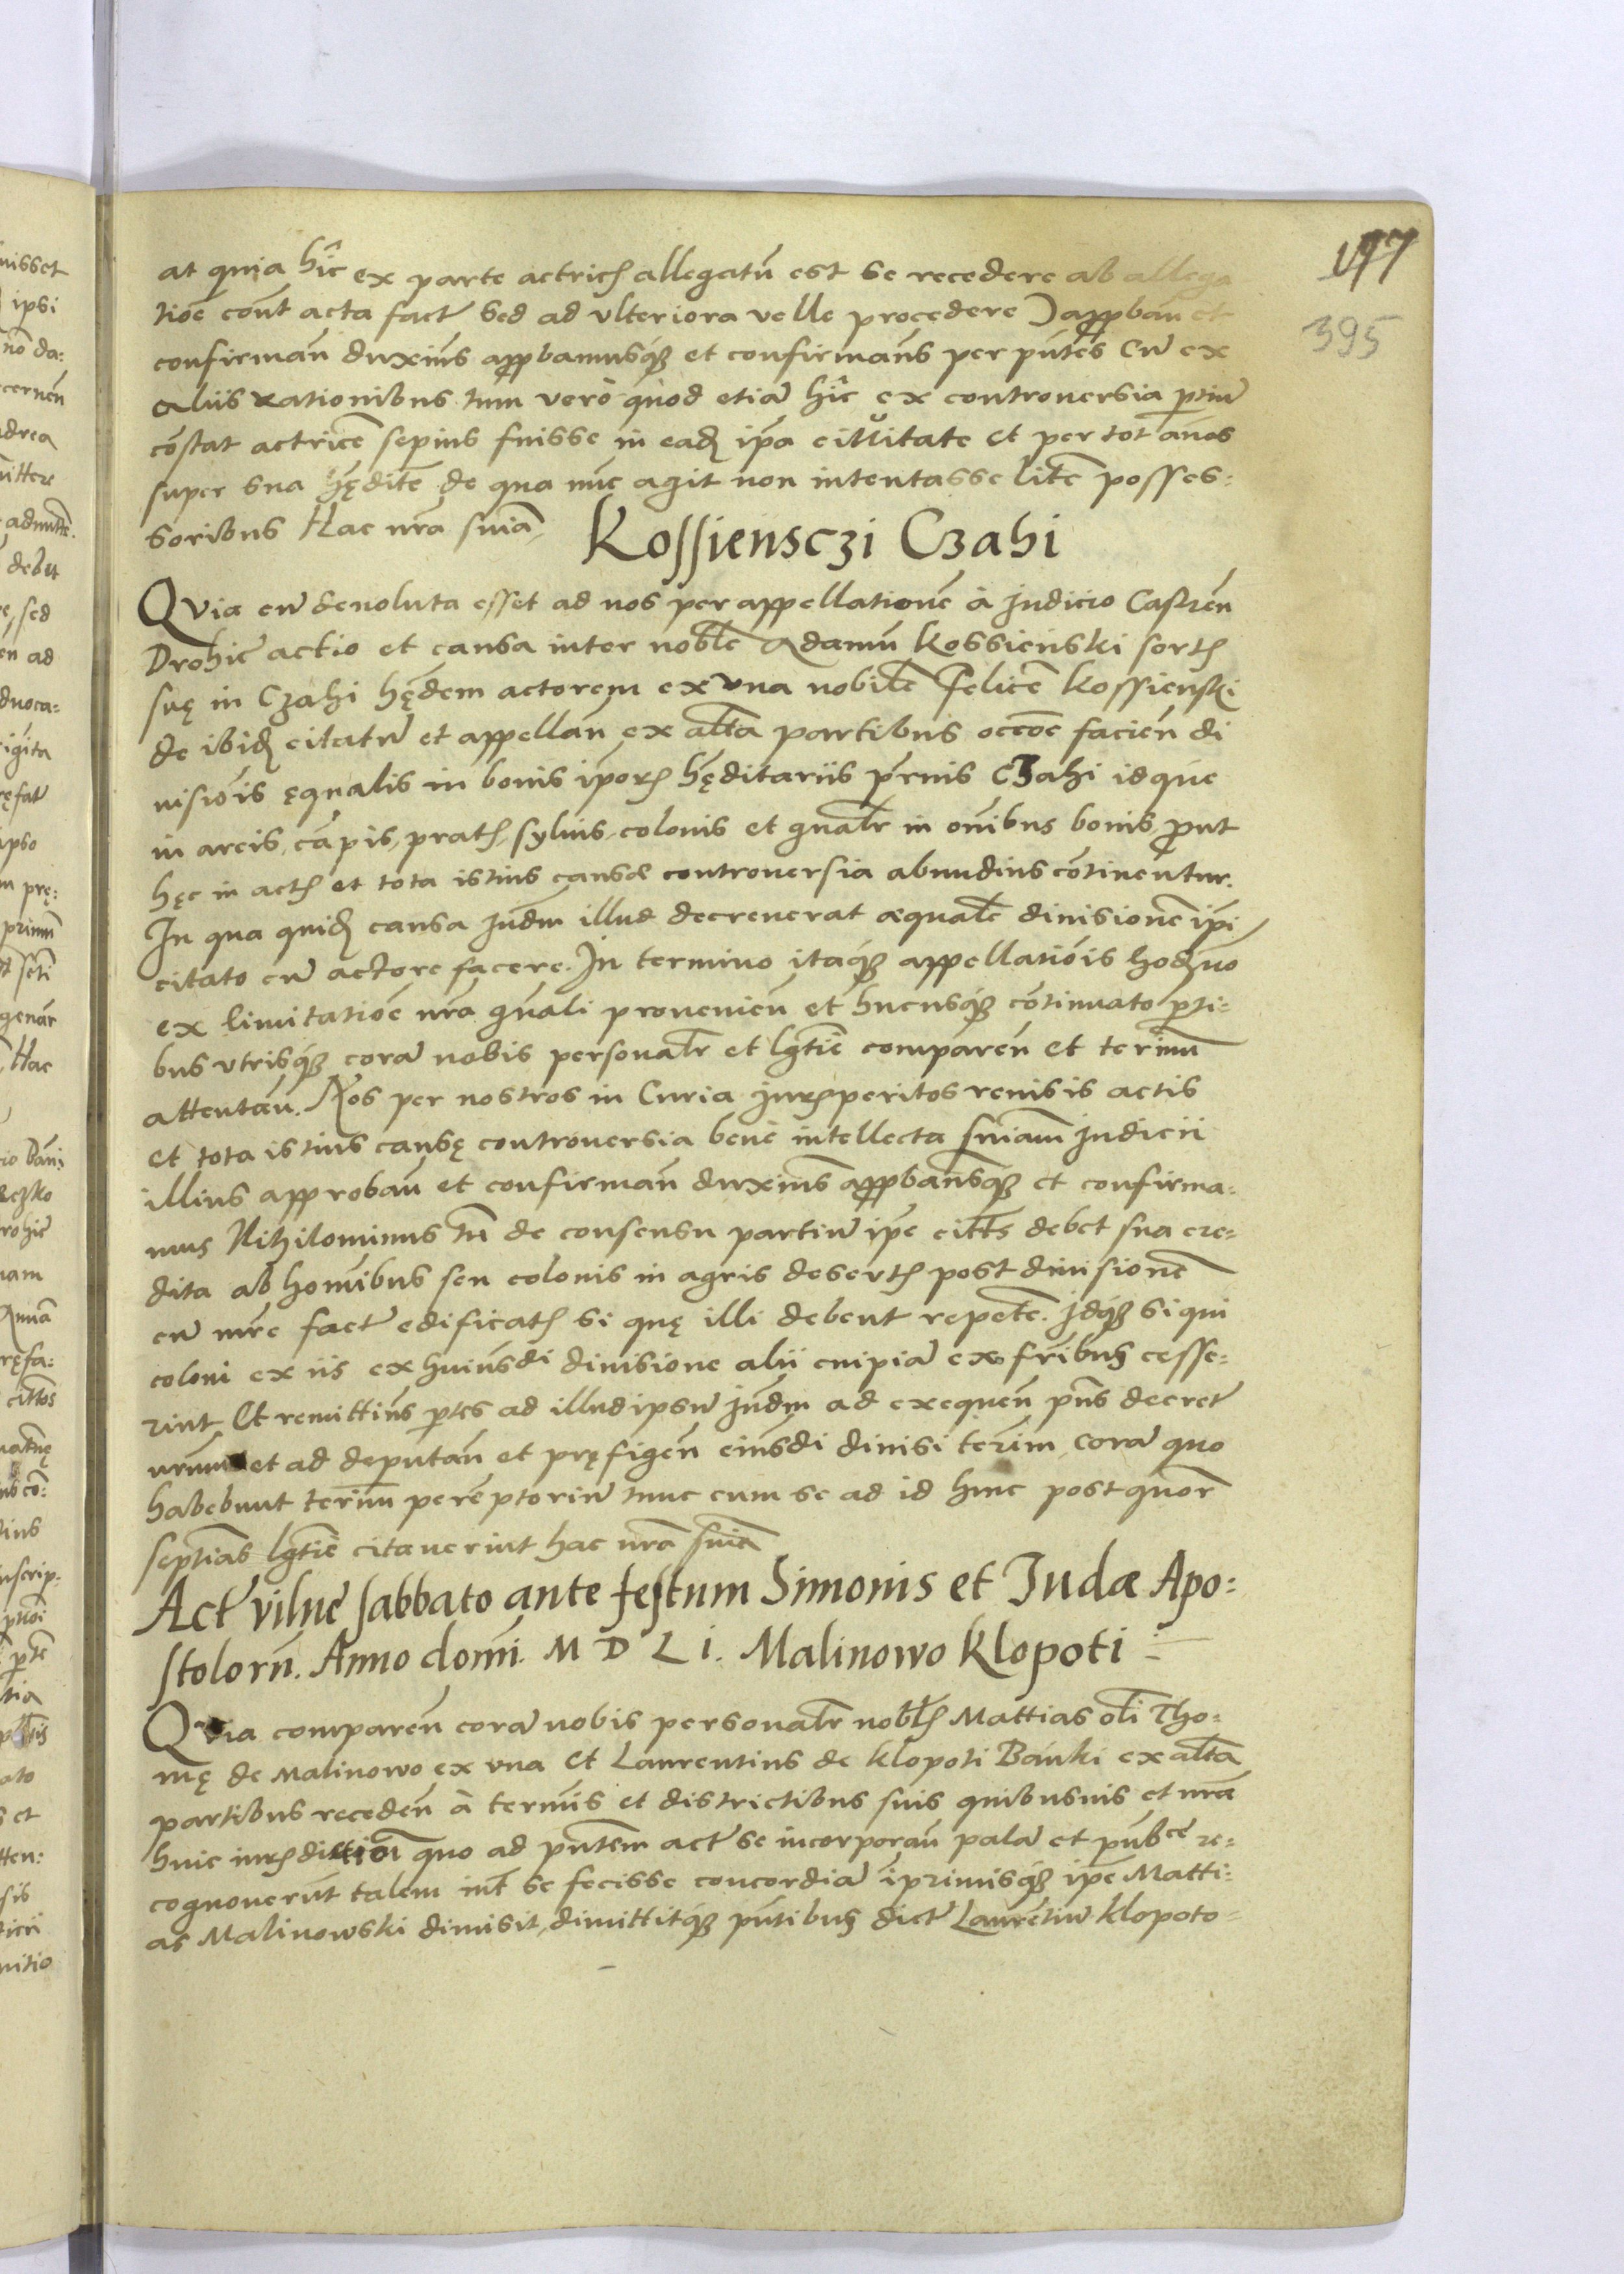 177
395
at quia hîc ex parte actricꝭ allegatū est se recedere ab allega
tiōe cont̄ acta fact̄ sed ad vlteriora velle procedere) app̱bān et
confirmān duximꝰ app̱bamusq̨ et confirmamꝰ per p̄ntes Cū ex
aliis rationibus tum verò quod etiā hîc ex controuersia ꝑtiū
cōstat actricē sepius fuisse in eadꝭ ip̄a ciuitate et per tot an̄os
super sua hęditē de qua nūc agit non intentasse litē posses:
soribus Hac nr̄a sn̄iā
Kossiensczi Czahi
Quia cū deuoluta esset ad nos per appellationē à judicio Castren̄
Drohic̄ actio et causa inter nobl̄e Adamū Kossienski sortꝭ
suę in Czahi hęd̄em actorem ex vna nobil̄e Felicē Kossienski
de ibidꝭ citatū et appellan̄ ex alt̄a partibus occōe facien̄ di
uisiōis ęqualis in bonis ip̄orꝭ hęditariis p̄rnis Czahi idque
in areis, cāpis, pratꝭ, syluis, colonis et gn̄alr̄ in om̄ibus bonis, ꝓut
hęc in actꝭ et tota istius causæ controuersia abundius cōtinentur.
In qua quidꝭ causa Jud̄m illud decreuerat æqual̄e diuisionē ip̄i
citato cū actore facere. In termino itaq̨ appellatiōis hodꝭno
ex limitatiōe nr̄a gn̄ali prouenien̄ et hucusq̨ cōtinuato ꝑti:
bus vtrisq̨ corā nobis personalr̄ et lgt̄ie comparen̄ et termīnū
attentān. Nos per nostros in Curia jurꝭperitos reuisis actis
et tota istius causę controuersia benè intellecta sn̄iam judicii
illius approbān et confirmān duximꝰ app̱bamꝰq̨ et confirma:
mus Nihilominus tn̄ de consensu partiū ip̄e citt̄s debet sua cre:
dita ab hom̄ibus seu colonis in agris desertꝭ post diuisionē
cū mr̄e fact̄ edificatꝭ si quę illi debent repet̄e. Jdq̨ si qui
coloni ex iis ex huiusdi diuisione alii cuipiā ex fr̄ibus cesse:
rint Et remittimꝰ ꝑtes ad illud ipsū jud̄m ad exequen̄ p̄ns decret̄
nrum et ad deputān et pręfigen̄ eiusdi diuisi termin̄, corā quo
habebunt termīnū perēptoriū tunc cum se ad id hinc post quor̄
septiās lgt̄ie citauerint hac nr̄a sn̄iā
Act̄ vilnę sabbato ante festum Simonis et Judæ Apo:
stolorū. Anno domī. M D L i. Malinowo Klopoti
Quia comparen̄ corā nobis personalr̄ nobl̄ꝭ Mattias ol̄i Tho:
mę de Malinowo ex vna Et Laurentius de Klopoti Bańki ex alt̄a
partibus receden̄ à termīs et districtibus suis quibusuis et nr̄æ
huic iurꝭdictiōi quo ad p̄ntem act̄ se incorporan̄ palā et pub̄ce re:
cognouerūt talem int̄ se fecisse concordiā īprimisq̨ ip̄e Matti:
as Malinowski dimisit, dimittitq̨ p̄ntibus dict̄ Laurētiū Klopoto: